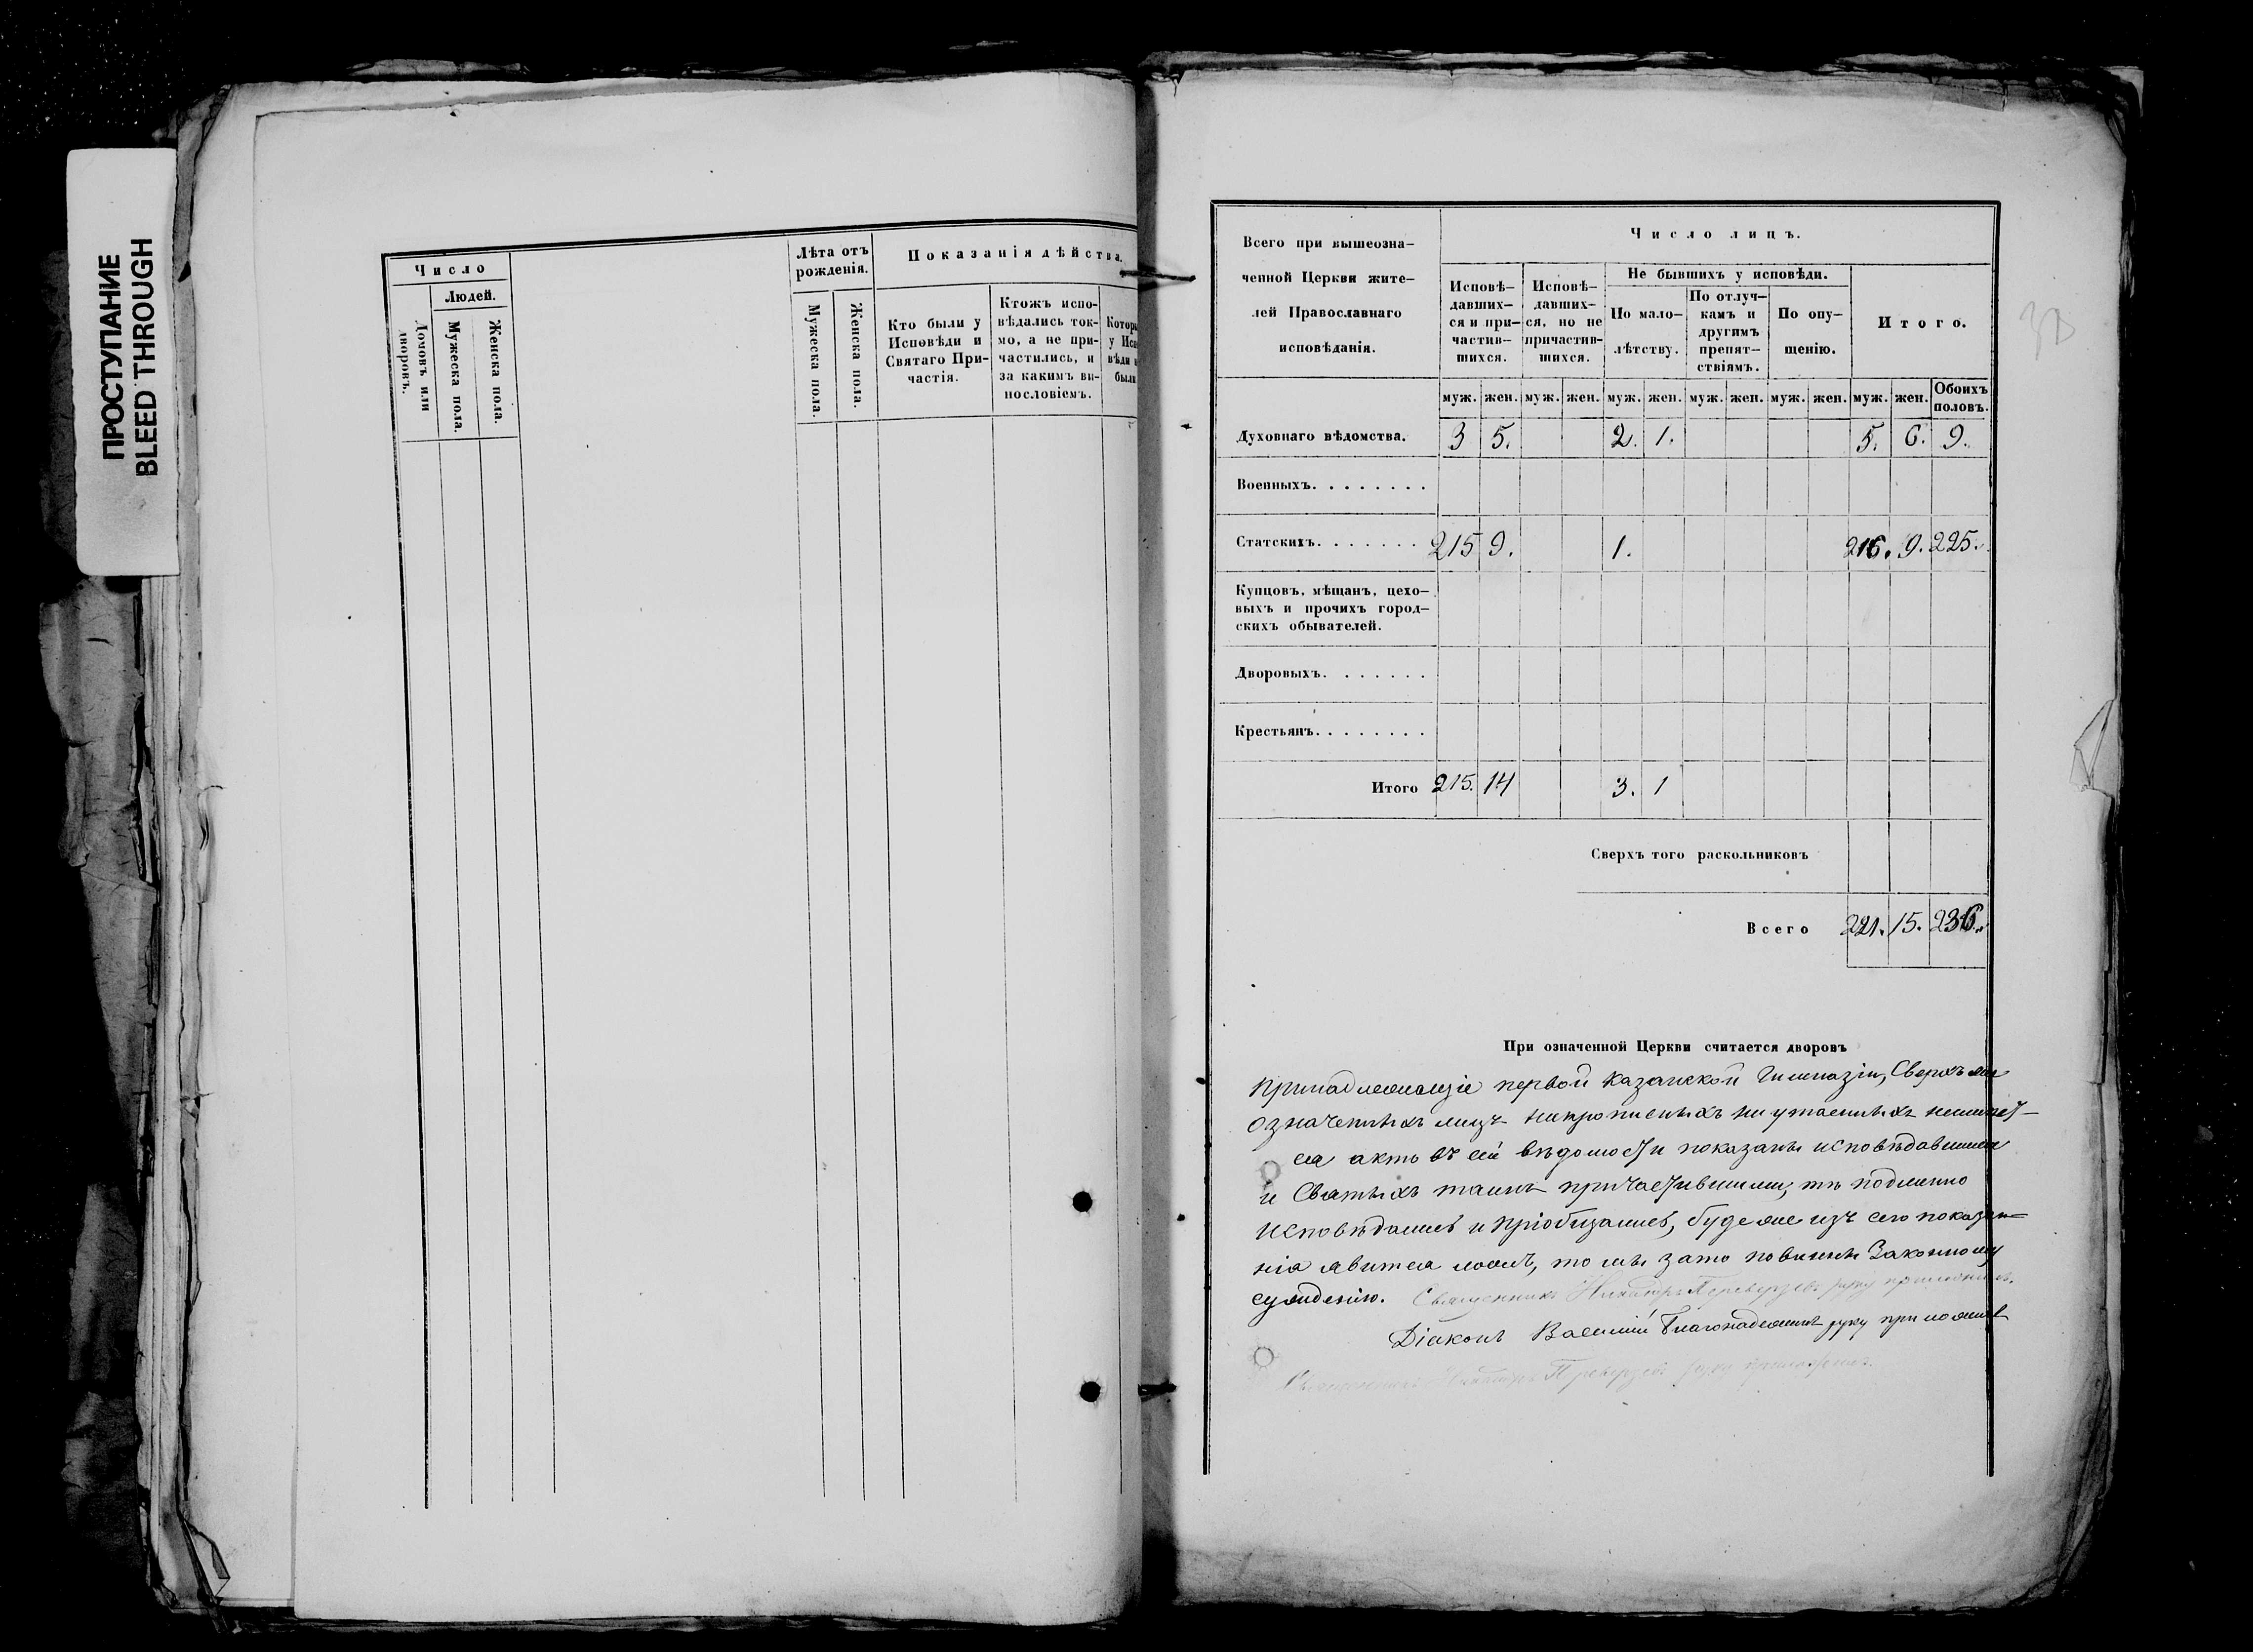 ПРОСТУПАНИЕ
BLEED THROUGH
Число
Людей.
Домовъ или дворовъ.
Мужеска пола.
Женска пола.
Лѣта отъ
рожденія.
Мужеска пола.
Женска пола.
Показанія дѣйства.
Кто были у
Исповѣди и
Святаго При-
частія.
Ктожъ испо-
вѣдались ток-
мо, а не при-
частились, и
за какимъ ви-
нословіемъ.
Котор
у Исп
вѣди н
были
Всего при вышеозна-
ченной Церкви жите-
лей Православнаго
исповѣданія.
Число лицъ.
Исповѣ-
давших-
ся и при-
частив-
шихся.
Исповѣ-
давших-
ся, но не
причастив-
шихся.
Не бывшихъ у исповѣди.
По мало-
лѣтству.
По отлуч-
камъ и
другимъ
препят-
ствіямъ.
По опу-
щенію.
Итого.
муж. жен. муж. жен. муж. жен. муж. жен. муж. жен. муж. жен. Обоихъ половъ.
Духовнаго вѣдомства. 3 5. 2. 1. 5. 6. 9.
Военныхъ. . . . . . . .
Статскихъ. . . . . . . 215 9. 1. 216. 9. 225.
Купцовъ, мѣщанъ, цехо-
выхъ и прочихъ город-
скихъ обывателей.
Дворовыхъ. . . . . . .
Крестьянъ. . . . . . . .
Итого 215. 14 3. 1
Сверхъ того раскольниковъ
Всего 221. 15. 236.
При означенной Церкви считается дворовъ
принадлежащіе первой Казанской Гимназіи, Сверхъ
означенныхъ лицъ ни прописныхъ ни утаенныхъ неимѣет-
ся акто въ сей вѣдомости показаны исповѣдавшимися
и Святыхъ таинъ причастившимися, тѣ подлинно
Исповѣдались и пріобщались, буде же изъ сего показа-
нія явится ложь, то мы зато повинны Законному
суждению. Священникъ Переверзевъ руку приложилъ.
Діаконъ Василій Благонадеждинъ руку приложилъ
Священникъ Переверзевъ руку приложилъ.